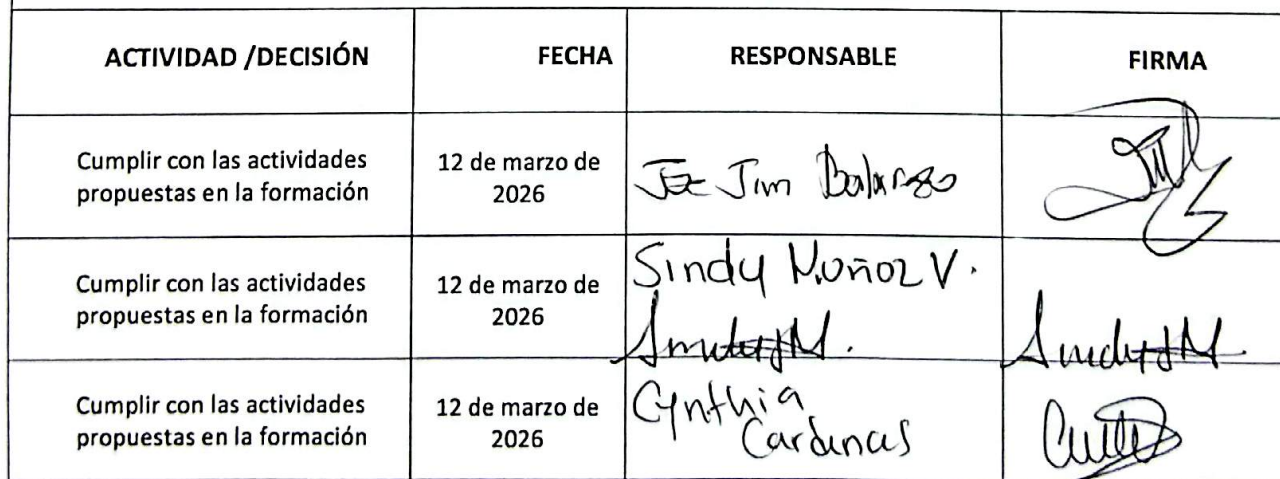 ACTIVIDAD /DECISIÓN FECHA RESPONSABLE FIRMA
Cumplir con las actividades
propuestas en la formación
12 de marzo de
2026
Jim
Cumplir con las actividades
propuestas en la formación
12 de marzo de
2026
Sindy Muñoz V.
Cumplir con las actividades
propuestas en la formación
12 de marzo de
2026
Cynthia
Cardenas